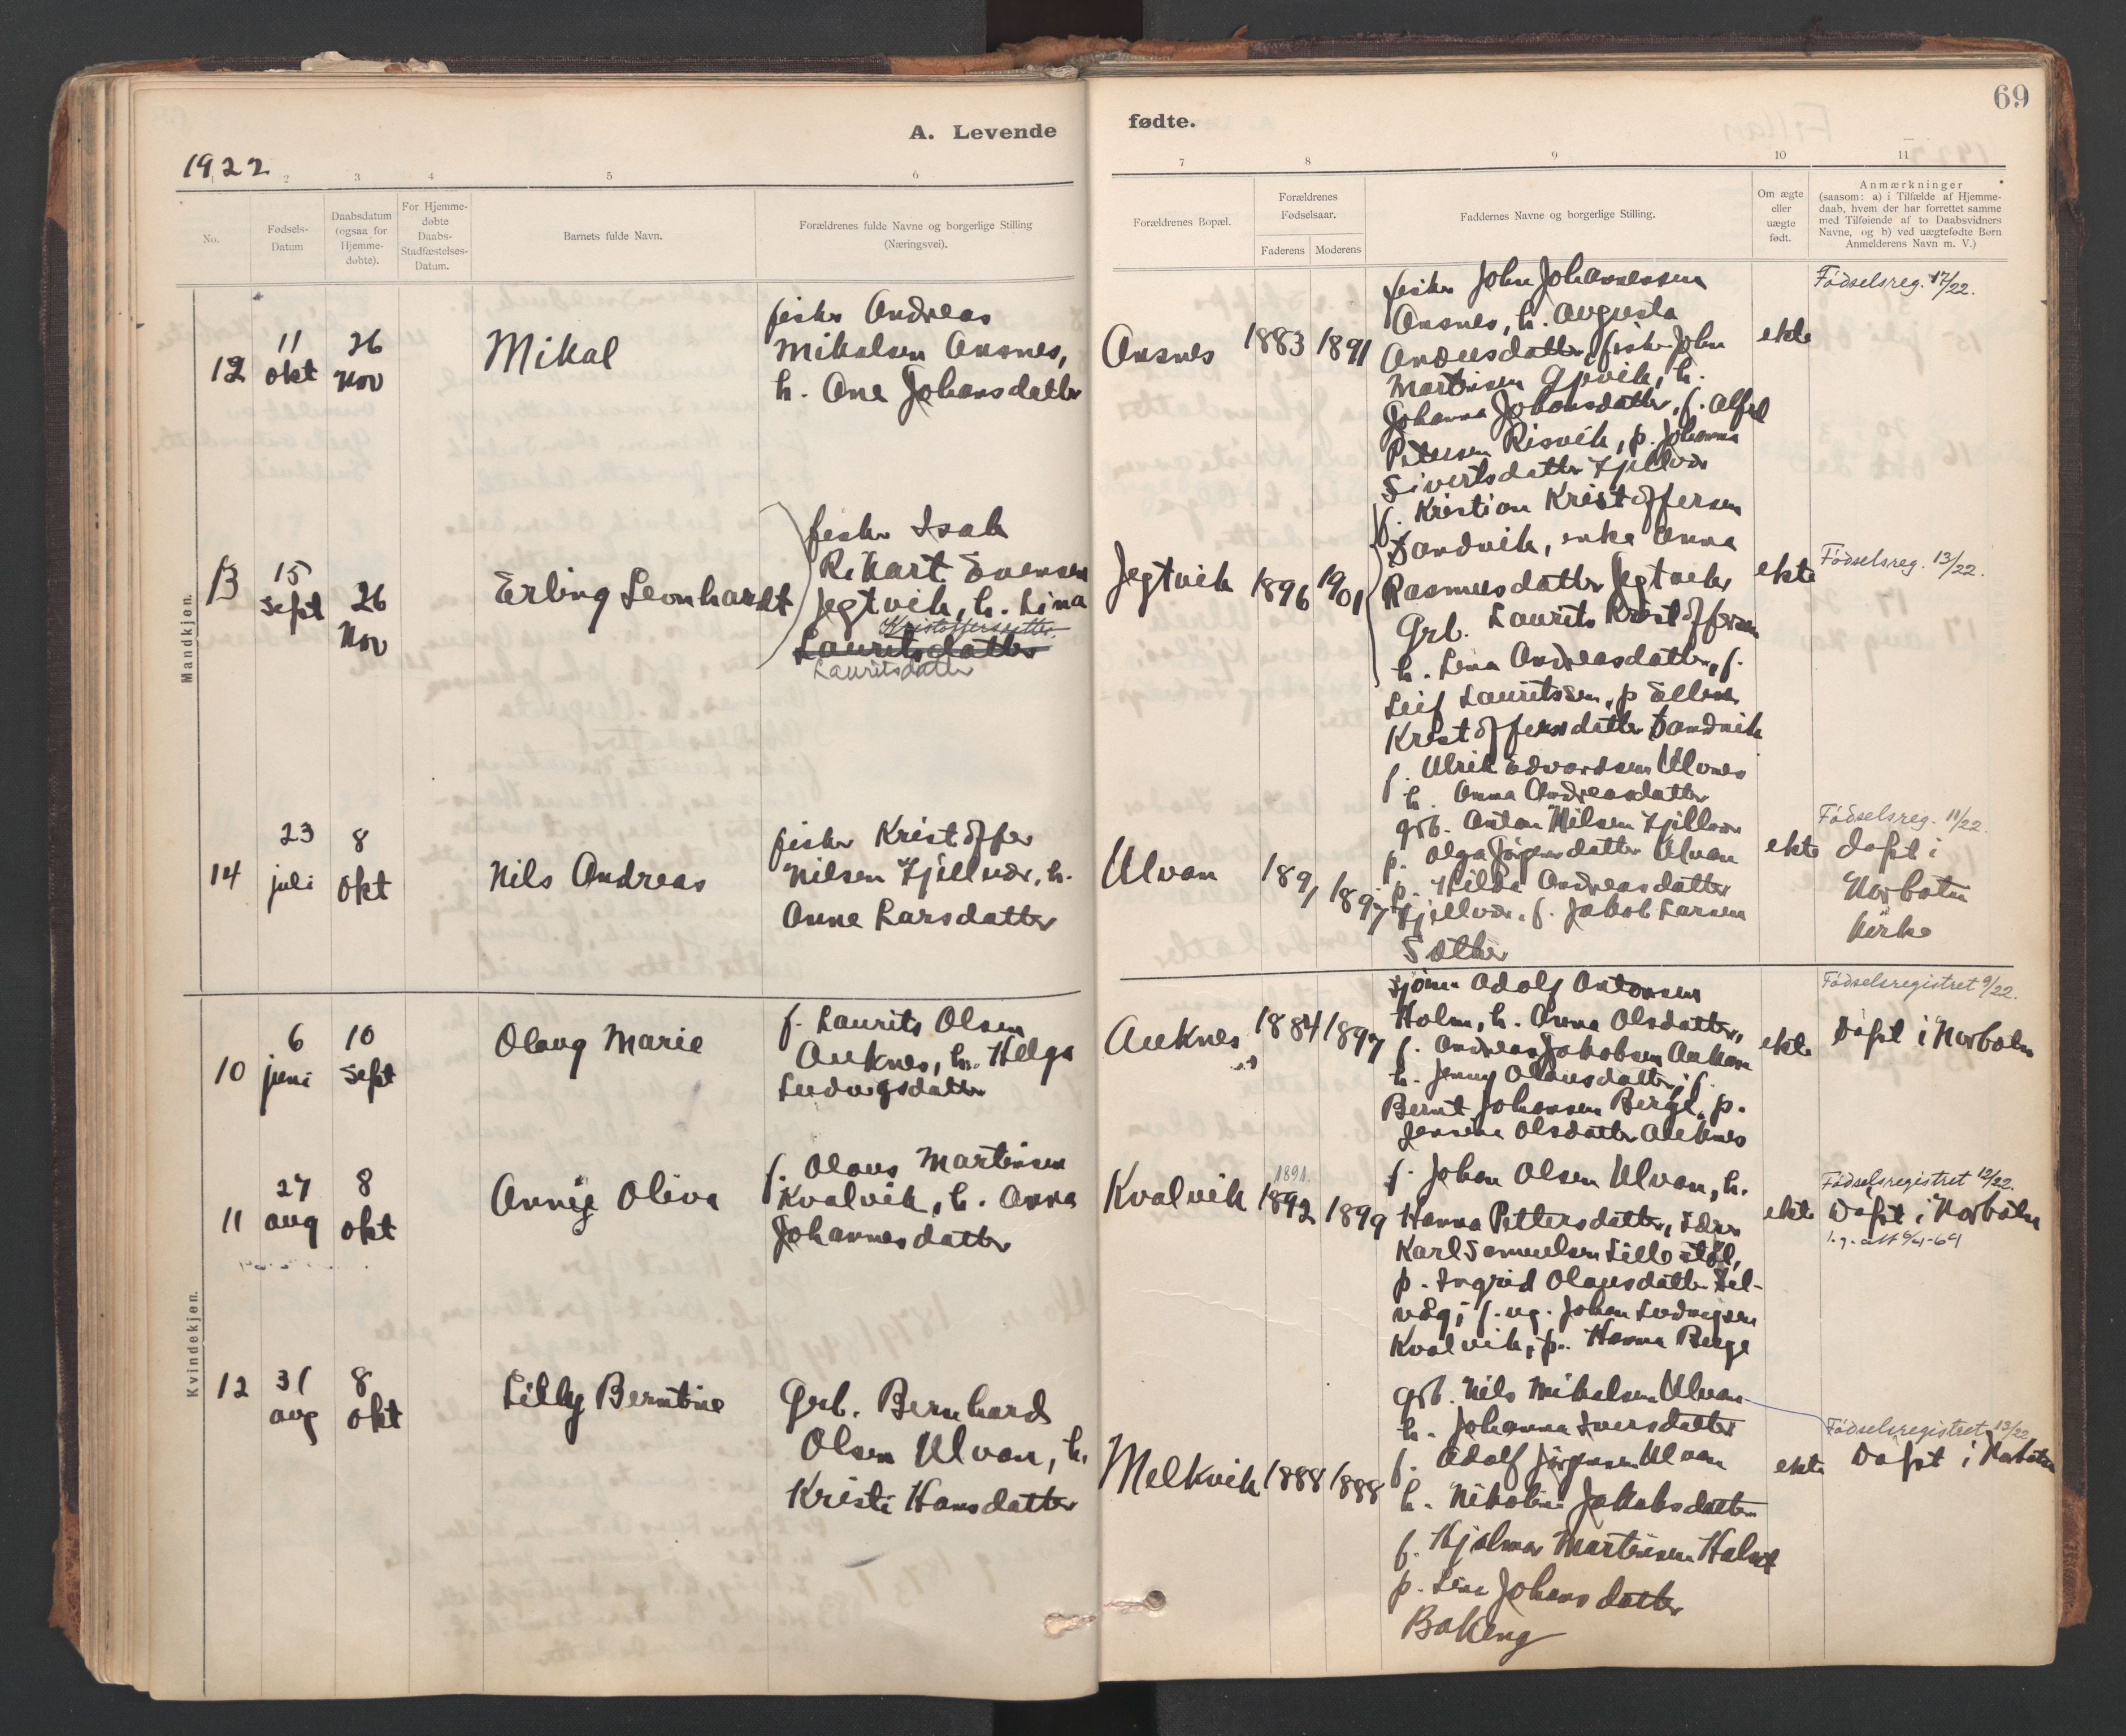 69
A. Levende
fødte.
1922
1 2 3 4 5 6
7 8 9 10 11
No.
Fødsels-
Datum
Daabsdatum
(ogsaa for
Hjemme-
døbte).
For Hjemme-
døbte
Daabs-
Stadfæstelses-
Datum.
Barnets fulde Navn.
Forældrenes fulde Navne og borgerlige Stilling
(Næringsvei).
Forældrenes Bopæl.
Forældrenes
Fødselsaar.
Faderens Moderens
Faddernes Navne og borgerlige Stilling.
Om ægte
eller
uægte
født.
Anmærkninger
(saasom: a) i Tilfælde af Hjemme-
daab, hvem der har forrettet samme
med Tilføiende af to Daabsvidners
Navne, og b) ved uægtefødte Børn
Anmelderens Navn m. V.)
Mandkjøn.
12
11
okt
26
Nov
Mikal
fisker Andreas
Mikalsen Ansnes,
h. Ane Johansdatter
Ansnes
1883
1891
fisker John Johannessen
Ansnes, h. Augusta
Andersdatter, fisker John
Martinsen Gjøvik, h.
Johanna Johansdatter, f. Alfred
Petersen Risvik, p. Johanna
Sivertsdatter Fjellvær
ekte
Fødselsreg. 17/22.
13
15
sept
26
Nov
Erling Leonhardt
fisker Isak
Rikart Evensen
Jegtvik, h. Lina
Kristoffersdatter
Lauritsdatter
Lauritsdatter
Jegtvik
1896
1901
f. Kristian Kristoffersen
Sandvik, enke Anna
Rasmusdatter Jegtvik
Grb. Laurits Kristoffersen
h. Lena Andreasdatter, f.
Leif Lauritssen, p Ellen
Kristoffersdatter Sandvik
ekte
Fødselsreg. 13/22.
14
23
juli
8
okt
Nils Andreas
fisker Kristoffer
Nilsen Fjellvær, h.
Anne Larsdatter
Ulvan
1891
1897
f. Ulrik Edvardsen Ulvnes
h. Anna Andreasdatter
grb. Anton Nilsen Fjellvær
p. Olga Jørgensdatter Ulvan
p. Hilda Andreasdatter
Fjellvær, f. Jakob Larsen
Sæther
ekte
Fødselsreg. 11/22.
døpt i
Norbotn
kirke
Kvindekjøn.
10
6
juni
10
sept
Olaug Marie
f. Laurits Olsen
Auknes, h. Helga
Ludvigsdatter
Auknes
1884
1897
sjøm. Adolf Antonsen
Holm, h. Anna Olsdatter,
f. Andreas Jakobsen
h. Jenny Olausdatter, f.
Bernt Johansen Berge, p.
Jensine Olsdatter Auknes
ekte
Fødselsregistret 9/22.
Døpt i Norbotn
11
27
aug
8
okt
Annie Oliva
f. Olaus Martinsen
Kvalvik, h. Anna
Johannesdatter
Kvalvik
1891
1892
1899
f. Johan Olsen Ulvan, h.
Hanna Pettersdatter,
Karl Samuelsen Lillestøl,
p. Ingrid Olausdatter Sel-
våg; f. ug. Johan Ludvigsen
Kvalvik, p. Hanna Berge
ekte
Fødselsregistret 12/22.
Døpt i Norbotn
12
31
aug
8
okt
Lilly Berntine
Grb. Bernhard
Olsen Ulvan, h.
Kristi Hansdatter
Melkvik
1888
1888
grb. Nils Mikalsen Ulvan
h. Johanna Iversdatter
f. Adolf Jørgensen Ulvan
h. Nikoline Jakobsdatter
f. Hjalmar Martinsen
p. Lina Johansdatter
Bakeng
ekte
Fødselsregistret 13/22
Døpt i Norbotn